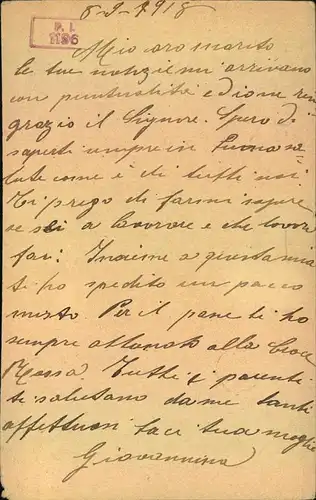 8-9-1918
P. I.
1196
Mio caro marito
le tue notizie mi arrivano
con puntualità e di one rin
grazio il Signore. Spero di
saperti sempre in buona sa
lute come è di tutti noi
Ti prego di farmi sapere
se sei a lavorare e che lavoro
fai: Insieme a questa mia
ti ho spedito un pacco
misto. Per il pane ti ho
sempre abbonato alla Croce
Rossa Tutti i parenti
ti salutano da me tanti
affettuosi baci tua moglie
Giovannina